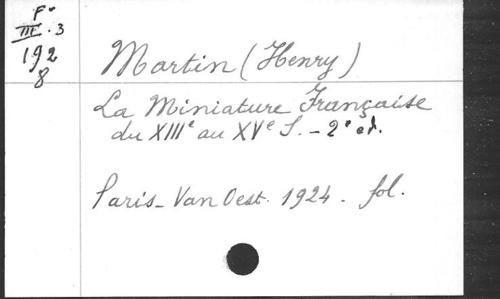 F°
III.3
192
8
Martin (Henry)
La Miniature Française
du XIIIe au XVe S. - 2e ed.
Paris - Van Oest. 1924. fol.